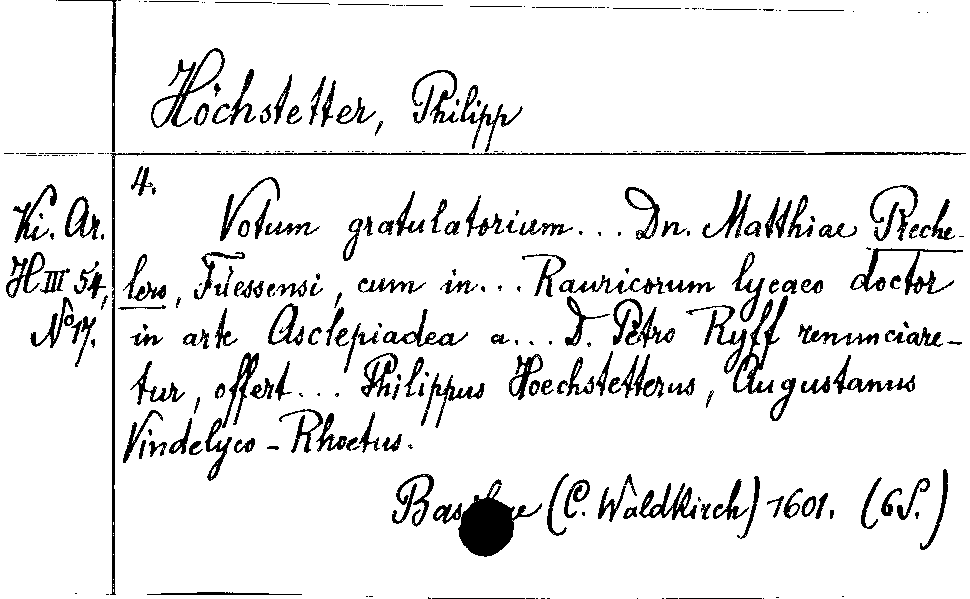 Höchstetter, Philipp
Ki. Ar.
H III 54,
No 17.
4.
Votum gratulatorium... Dn. Matthiae Reche-
lero, Füessensi, cum in... Rauricorum lycaeo doctor
in arte Asclepiadea a... D. Petro Ryff renunciare-
tur, offert... Philippus Hoechstetterus, Augustanus
Vindelyco-Rhoetus.
Basileae (C. Waldkirch) 1601. (6 S.)